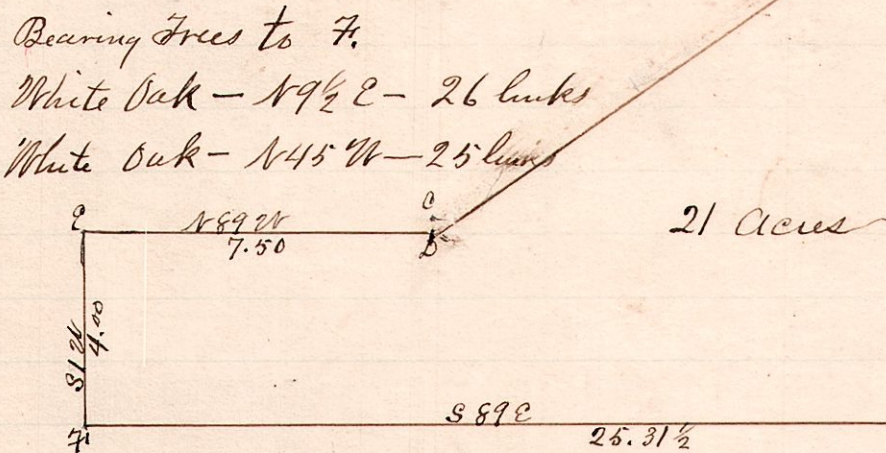 Bearing Trees to F.
White Oak — N 9½ E — 26 links
White Oak — N 45 W — 25 links
E N 89 W C
7.50 D
21 Acres
S 1 W
4.00
F S 89 E
25.31½